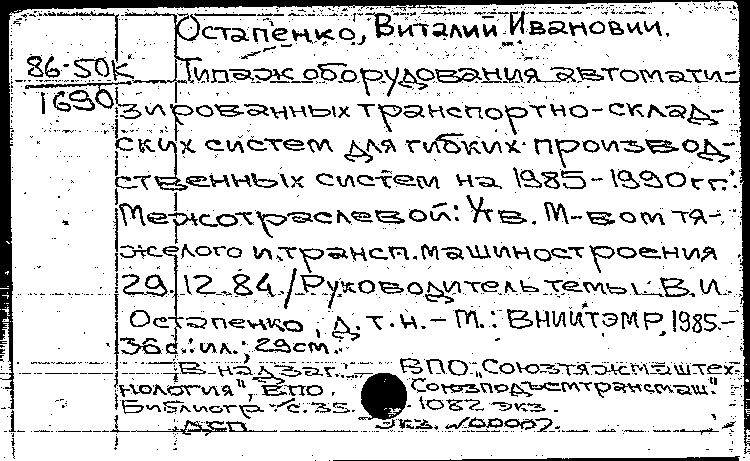 Остапенко, Виталий Иванович.
86-50к
1690
Типаж оборудования автомати-
зированных транспортно-склад-
ских систем для гибких производ-
ственных систем на 1985-1990 гг.:
Межотраслевой: Утв. М-вом тя-
желого и трансп. машиностроения
29.12.84 / Руководитель темы В.И.
Остапенко, д.т.н. - М.: ВНИИТЭМР, 1985. -
36 с.: ил.; 29 см.
В надзаг.: ВПО "Союзтяжмаштех-
нология", ВПО "Союзподъемтрансмаш".
Библиогр.: с. 35. 1082 экз.
ДСП Экз. №00007.